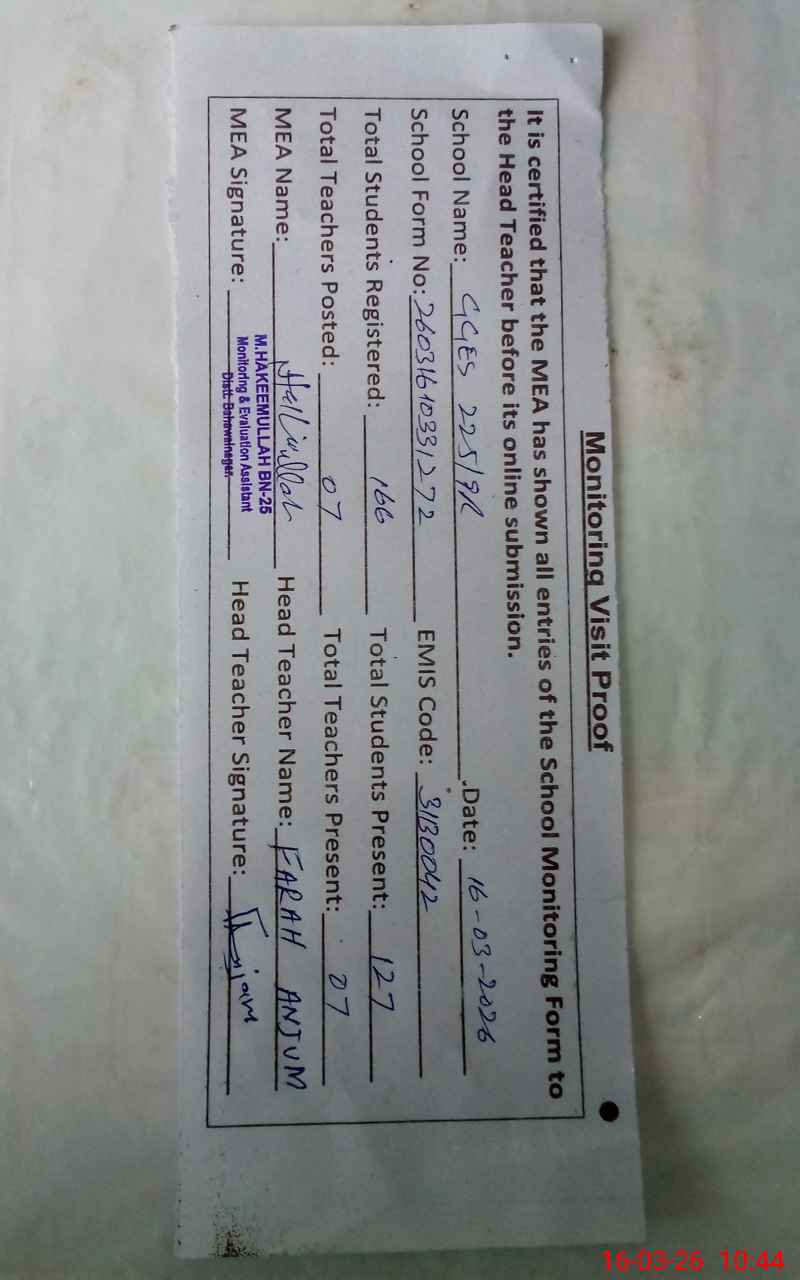 Monitoring Visit Proof
It is certified that the MEA has shown all entries of the School Monitoring Form to
the Head Teacher before its online submission.
School Name: GGES 225/9R Date: 16-03-2026
School Form No: 26031610331272 EMIS Code: 31130042
Total Students Registered: 166 Total Students Present: 127
Total Teachers Posted: 07 Total Teachers Present: 07
MEA Name: Head Teacher Name: FARAH ANJUM
M.HAKEEMULLAH BN-25
Monitoring & Evaluation Assistant
Distt. Bahawalnagar.
MEA Signature: Head Teacher Signature:
16-03-26 10:44